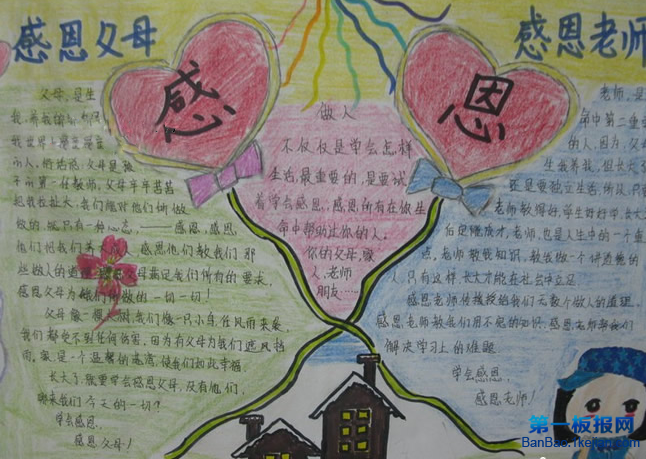 感恩父母
感
恩
感恩老师
父母，是生
我，养我的
我世界上
而人，俗话说，父母是孩
子的第一任教师，父母辛辛苦苦
把我在拉大，我们能对他们所做
做的，就只有一种心态，——感恩，感恩，
他们把我们养 感恩他们教我们那
些做人的道理 父母满足我们所有的要求，
感恩父母为我们所做的一切一切！
父母像一棵大树，我们像一只小鸟，任风雨来袭，
我们都受不到任何伤害，因为有父母为我们遮风挡
雨，家是一个温馨的港湾，使我们如此幸福
长大了，就要学会感恩父母，没有他们，
哪来我们今天的一切？
学会感恩，
感恩父母！
做人
不仅仅是学会怎样
生活，最重要的，是要试
着学会感恩，感恩所有在你生
命中帮助过你的人。
你的父母，家
人，老师
朋友……
老师，是
命中第二重要
的人，因为，父母
生我养我，但长大
还是要独立生活，所以，只
老师教得好，学生学好学，长大
后更能成才，老师，也是人生中的一个重
点，老师，教我知识，教我做一个讲道德的
人，只有这样，长大才能在社会中立足
感恩老师传授我给我们无数个做人的道理。
感恩老师教我们用不完的知识，感恩老师帮我们
解决学习上的难题
学会感恩，
感恩老师！
第一板报网
BanBao.1kejian.com